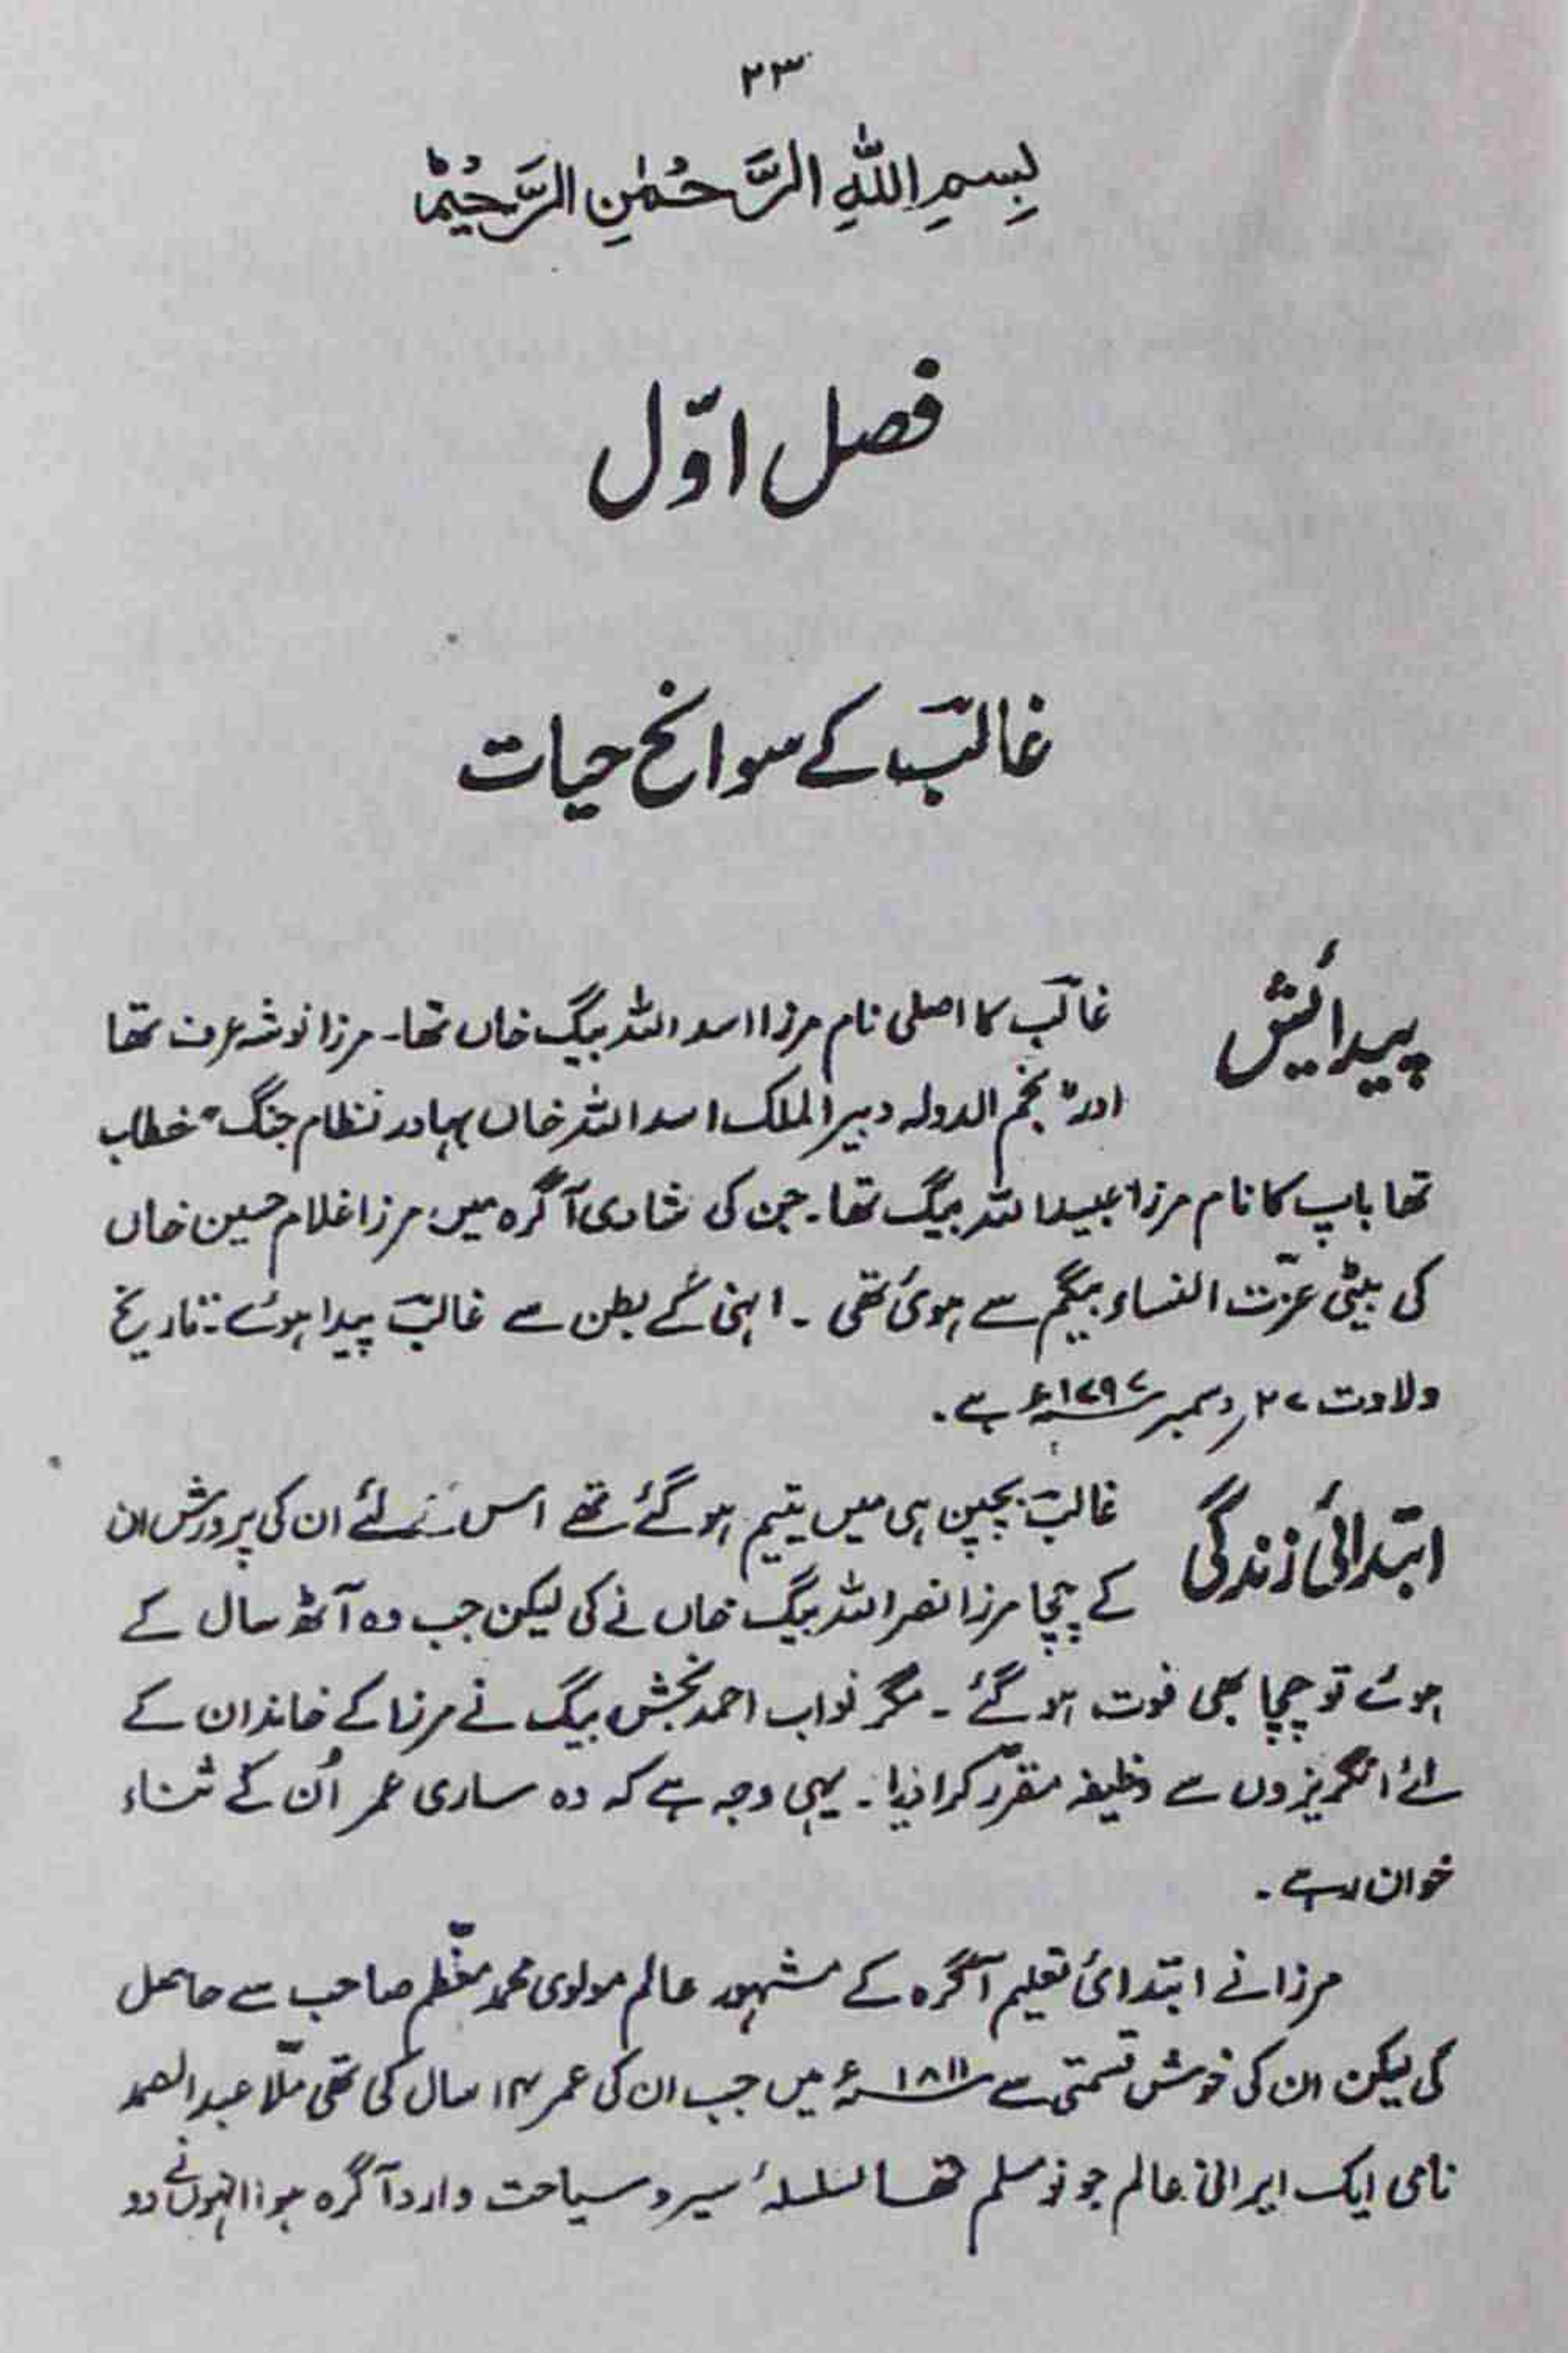 ۲۳
بِسمِ اللهِ الرَّحمٰنِ الرَّحیم
فصل اوّل
غالبؔ کے سوانح حیات
پیدائش
غالبؔ کا اصلی نام مرزا اسد اللہ بیگ خاں تھا۔ مرزا نوشہ عرف تھا
اور "نجم الدولہ دبیر الملک اسد اللہ خاں بہادر نظام جنگ" خطاب
تھا باپ کا نام مرزا عبید اللہ بیگ تھا۔ جن کی شادی آگرہ میں مرزا غلام حسین خاں
کی بیٹی عزّت النساء بیگم سے ہوئی تھی ۔ انہی کے بطن سے غالبؔ پیدا ہوئے۔ تاریخ
ولادت ۲۷ دسمبر ۱۷۹۷ء ہے ۔
ابتدائی زندگی
غالبؔ بچپن ہی میں یتیم ہو گئے تھے اس لئے ان کی پرورش ان
کے چچا مرزا نصر اللہ بیگ خاں نے کی لیکن جب وہ آٹھ سال کے
ہوئے تو چچا بھی فوت ہو گئے ۔ مگر نواب احمد بخش بیگ نے مرزا کے خاندان کے
لئے انگریزوں سے وظیفہ مقرّر کرا دیا۔ یہی وجہ ہے کہ وہ ساری عمر اُن کے ثناء
خوان رہے ۔
مرزا نے ابتدائی تعلیم آگرہ کے مشہور عالم مولوی محمد معظّم صاحب سے حاصل
کی لیکن ان کی خوش قسمتی سے ۱۸۱۱ء میں جب ان کی عمر ۱۴ سال کی تھی ملّا عبد الصمد
نامی ایک ایرانی عالم جو نو مسلم تھا بسلسلۂ سیر و سیاحت وارد آگرہ ہوا انہوں نے دو